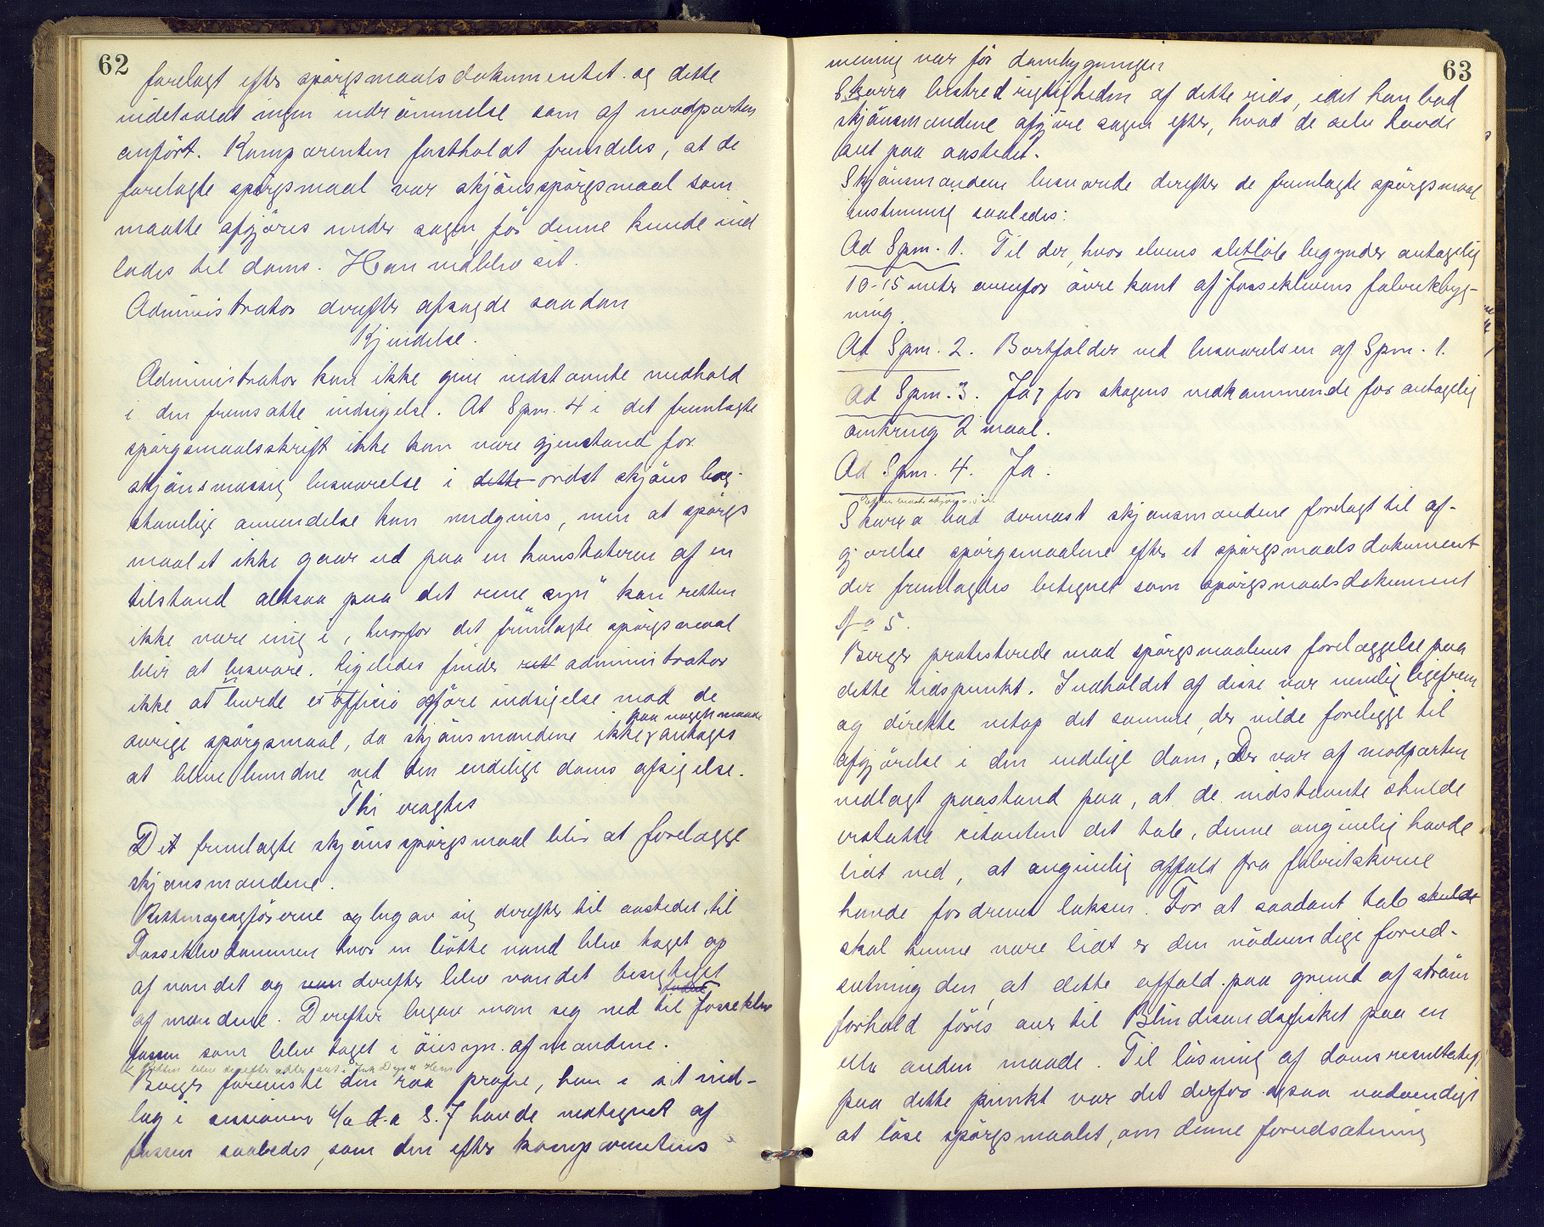 62
forelagt efter spörgsmaalsdokumentet og dette
indeholdt ingen indrömmelse som af modparten
anfört. Komparenten fastholdt fremdeles, at de
forelagte spörgsmaal var skjönsspörgsmaal som
maatte afgjöres under sagen för denne kunde ind
lades til doms. Han nedlblev sit.
Administrator derefter afsagde saadan
Kjendelse.
Administrator kan ikke give indstævnte medhold
i den fremsatte indsigelse. At Spm. 4 i det fremlagte
spörgsmaalsskrift ikke kan være gjenstand for
skjönsmæssig besvarelse i dette ordet skjöns bog-
stavelige anvendelse kan medgives, men at spörgs
maalet ikke gaar ud paa en konstateren af en
tilstand altsaa paa det rene "syn" kan retten
ikke være enig i, hvorfor det fremlagte spörgsmaal
blir at besvare. Ligeledes finder rett administrator
ikke at burde ex officio gjöre indsigelse mod de
övrige spörgsmaal, da skjönsmændene ikke paa nogen maade antages
at blive bundne ved den endelige doms afsigelse.
Thi eragtes
Det fremlagte skjönsspörgsmaal blir at forelægge
skjönsmændene.
Rettmagsagförerne og begav sig derefter til aastedet, til
Fosseklevdammen hvor en bötte vand blev taget op
af vandet og van derefter blev vandet besigtiget
af mændene. Derefter begav man seg ned til Fosseklev
fossen som blev taget i öiesyn af mændene.
Berger foreviste den raa profie, han i sit ind-
læg i sessionen
fossen saaledes, som den efter komparentens
63
mening var för dambygningen
Skarra bestred rigtigheden af dette rids, idet han bad
skjönsmændene afgjöre sagen efter, hvad de selv havde
set paa aastedet.
Skjönsmændene besvarede derefter de fremlagte spörgsmaal
enstemmig saaledes:
Ad Spm. 1. Til der, hvor elvens sletlöb begynder antagelig
10-15 meter ovenfor övre kant af fosseklevens fabrikbyg-
ning.
Ad Spm. 2. Bortfalder ved besvarelsen af Spm. 1.
Ad Spm. 3. Ja, for skogens vedkommende for antagelig
omkring 2 maal.
Ad Spm. 4. Ja.
Skarra bad dernæst skjönsmændene forelagt til af-
gjörelse spörgsmaalene efter et spörgsmaalsdokument
der fremlagdes betegnet som spörgsmaalsdokument
No 5.
Berger protesterede mod spörgsmaalenes forelæggelse paa
dette tidspunkt. Indholdet af disse var nemlig ligefrem
og direkte netop det samme, der vilde forelegge til
afgjörelse i den endelige dom, Der var af modparten
nedlagt paastand paa, at de indstevnte skulde
erstatte citanten det tab, denne angivelig havde
lidt ved, at angivelig affald fra fabrikkerne
havde fordrevet laksen. For at saadant tab skulde
skal kunne være lidt er den nödvendige forud-
sætning den, at dette affald paa grund af ström
forhold föres over til Blindesundsfisket paa en
elle anden maade. Til lösning af domsresultatet
paa dette punkt var det derfor ogsaa nödvendigt
at löse spörgsmaalet, om denne forudsætning